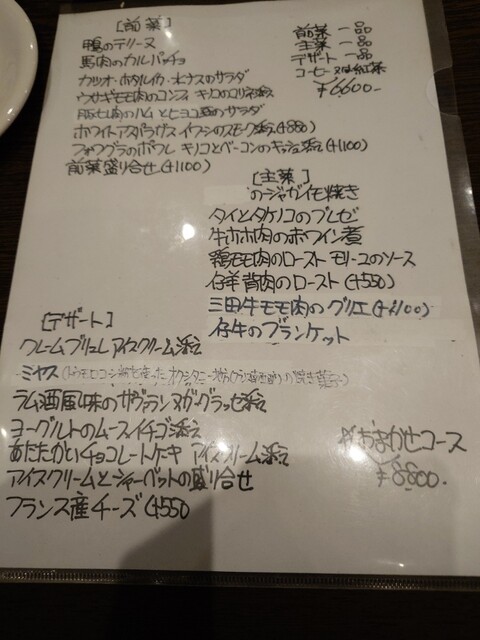 [前菜]
鴨のテリーヌ
馬肉のカルパッチョ
カツオ・ホタルイカ・水ナスのサラダ
ウサギモモ肉のコンフィ キノコのリゾット添え
豚七肉のハムとヒヨコ豆のサラダ
ホワイトアスパラガス イワシのスモーク添え(+880)
フォワグラのポワレ キノコとベーコンのキッシュ添え(+1100)
前菜盛り合せ(+1100)
前菜 一品
主菜 一品
デザート 一品
コーヒー又は紅茶
¥6600-
[主菜]
のジャガイモ焼き
タイとタケノコのブレゼ
牛ホホ肉の赤ワイン煮
鶏モモ肉のロースト モリーユのソース
仔羊背肉のロースト(+550)
三田牛モモ肉のグリエ(+1100)
仔牛のブランケット
[デザート]
クレームブリュレ アイスクリーム添え
ミヤス
ラム酒風味のサヴァラン ヌガーグラッセ添え
ヨーグルトのムース イチゴ添え
あたたかいチョコレートケーキ アイスクリーム添え
アイスクリームとシャーベットの盛り合せ
フランス産チーズ(+550
おまかせコース
¥8800-